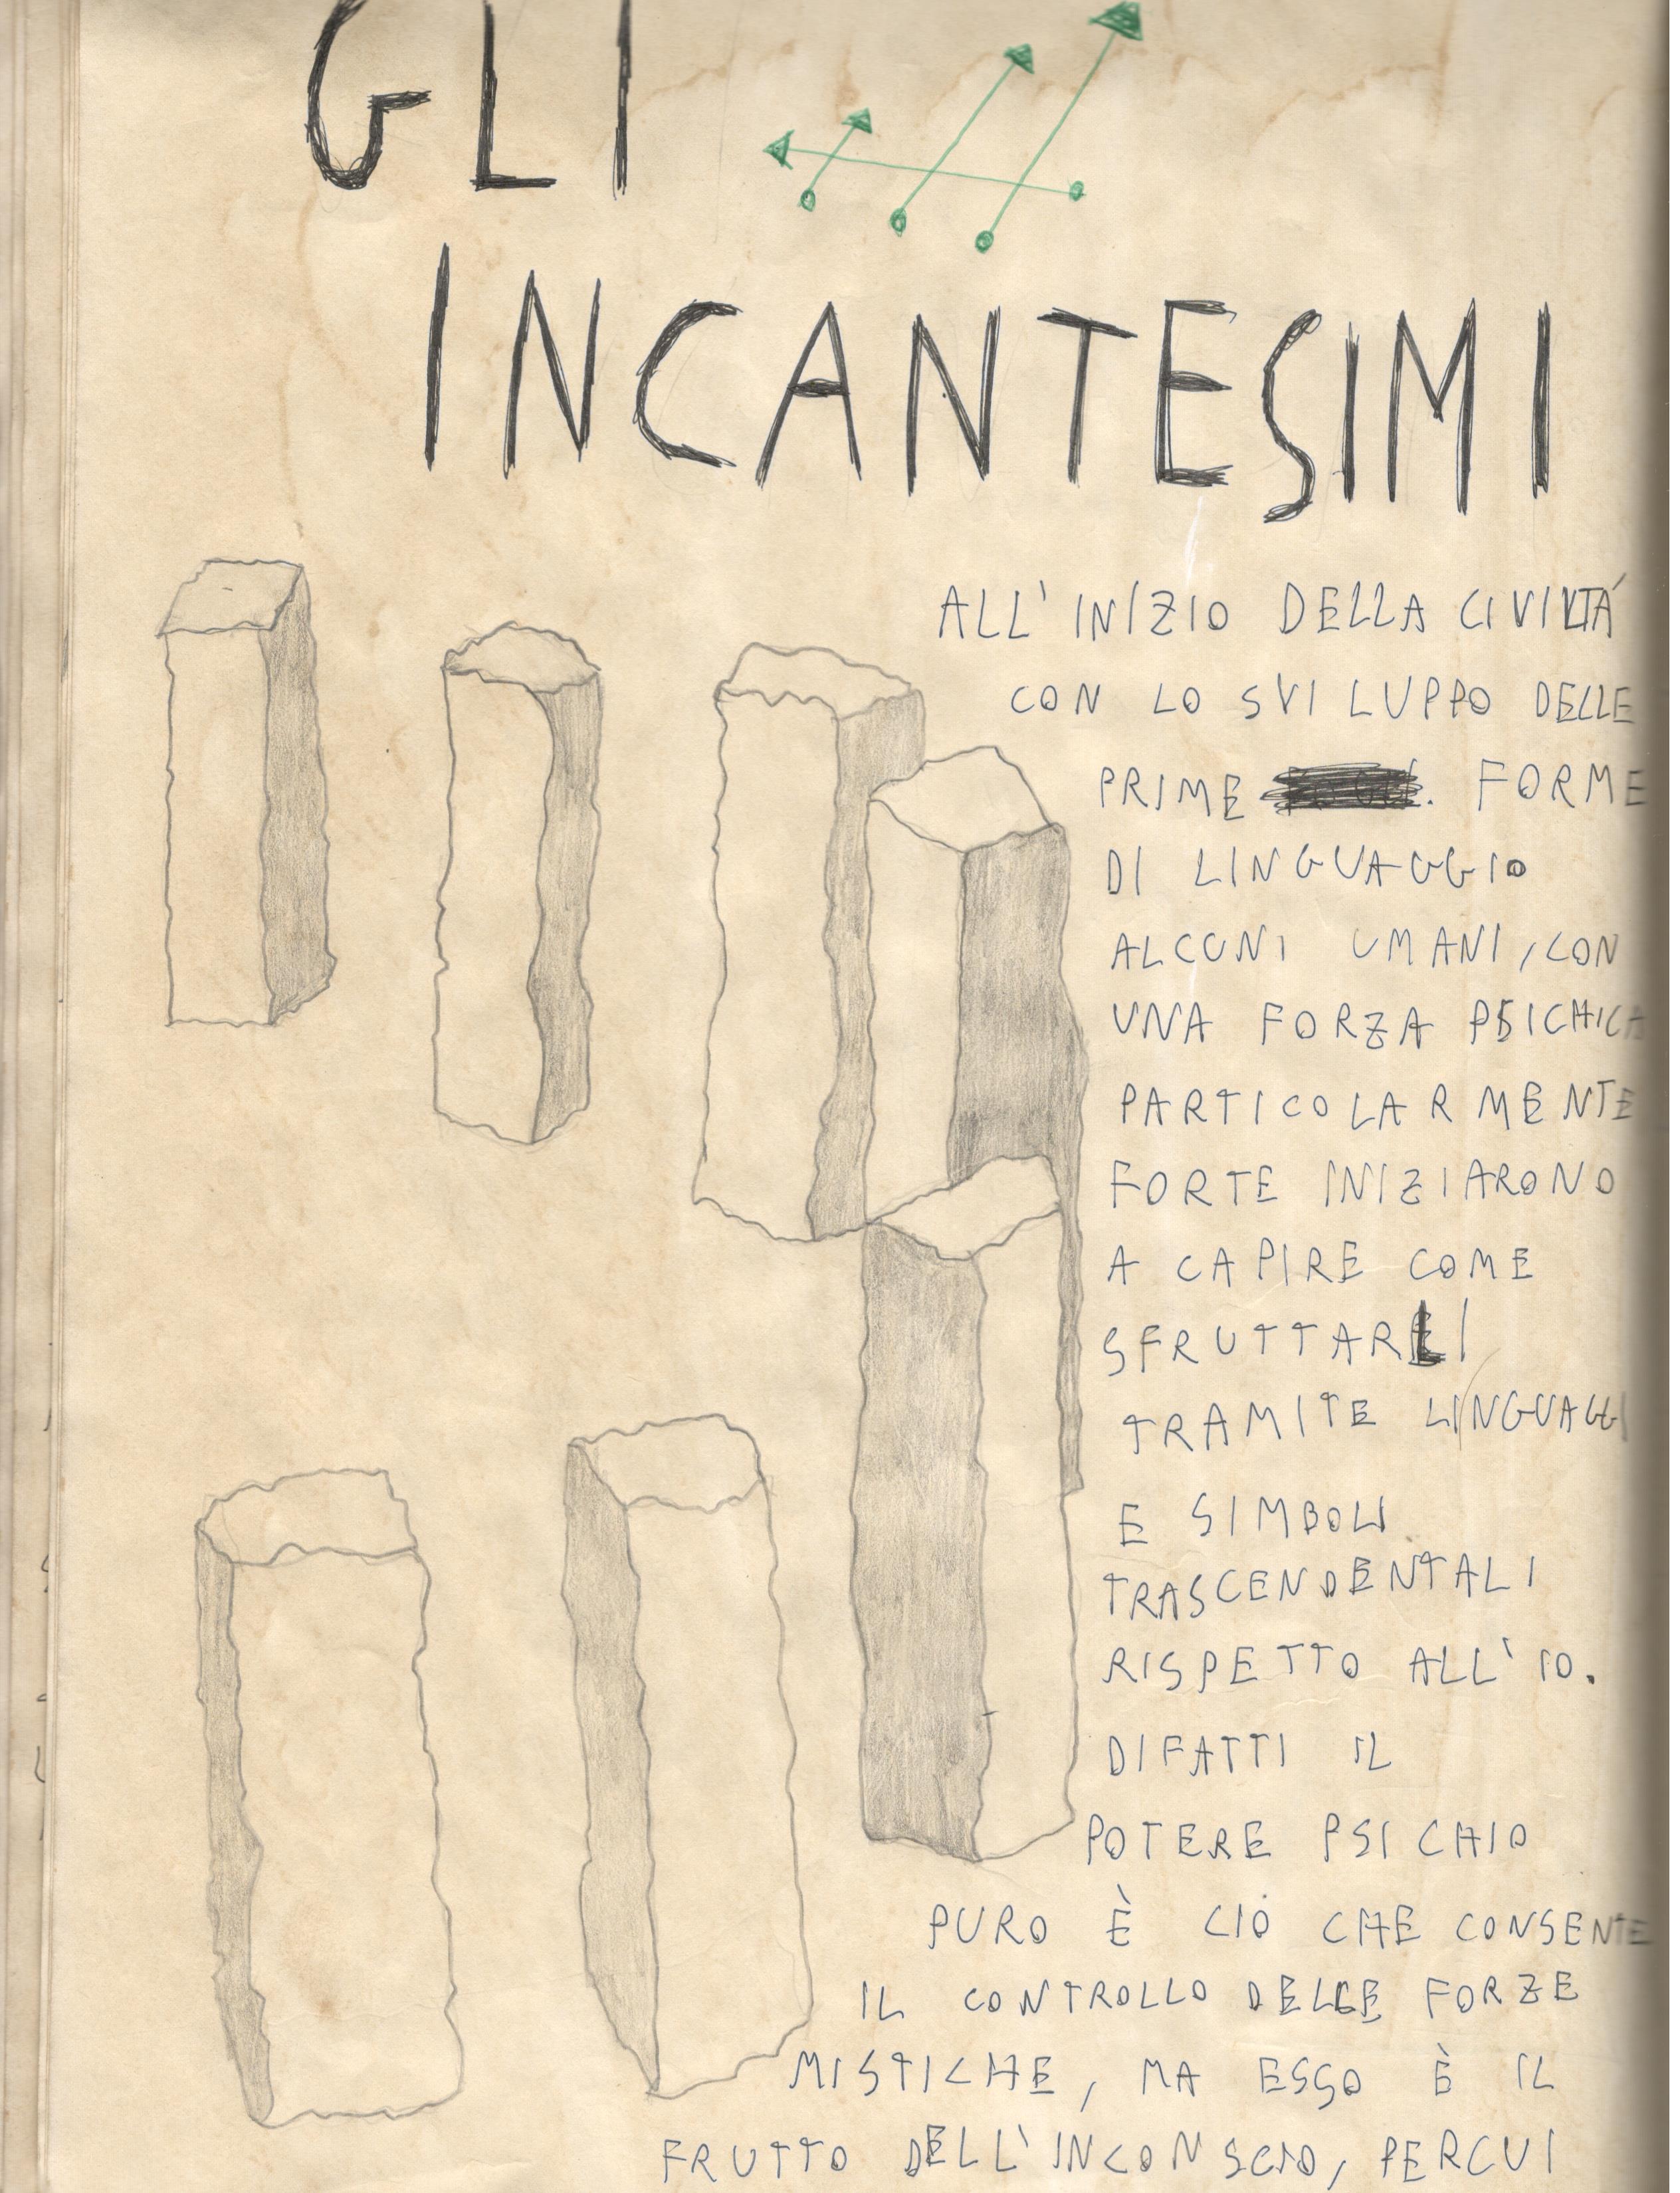 GLI
INCANTESIMI
ALL'INIZIO DELLA CIVILTÁ
CON LO SVILUPPO DELLE
PRIME . FORME
DI LINGUAGGIO
ALCUNI UMANI, CON
UNA FORZA PSICHICA
PARTICOLARMENTE
FORTE INIZIARONO
A CAPIRE COME
SFRUTTARLI
TRAMITE LINGUAGGI
E SIMBOLI
TRASCENDENTALI
RISPETTO ALL'IO.
DIFATTI IL
POTERE PSICHIO
PURO È CIÒ CHE CONSENTE
IL CONTROLLO DELLE FORZE
MISTICHE, MA ESSO È IL
FRUTTO DELL'INCONSCIO, PERCUI